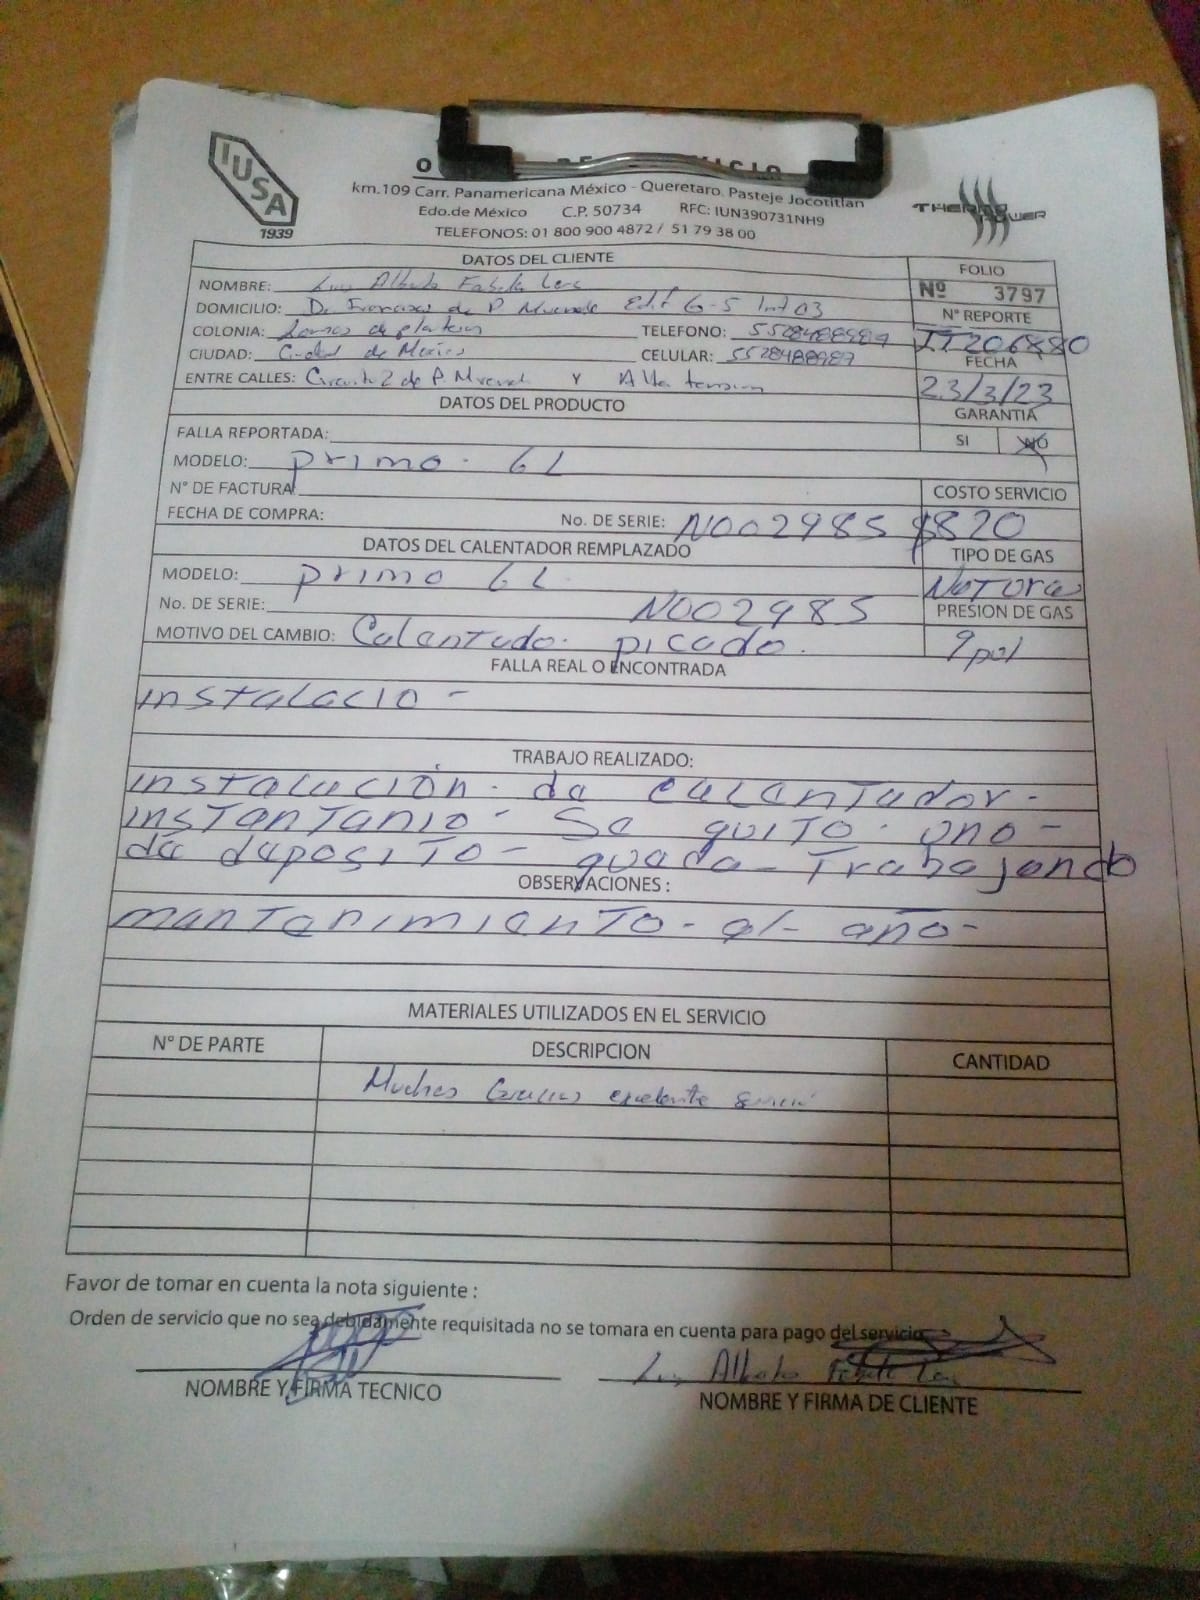 IUSA
1939
km.109 Carr. Panamericana México - Queretaro. Pasteje Jocotitlan
Edo.de México C.P. 50734 RFC: IUN390731NH9
TELEFONOS: 01 800 900 4872 / 51 79 38 00
THERMO POWER
DATOS DEL CLIENTE
FOLIO
Nº 3797
NOMBRE: Luis Alberto Fabela
DOMICILIO: Dr Francisco de P Miranda Edif G-5 Int 03
N° REPORTE
COLONIA: Lomas de plateros TELEFONO:
IT206880
CIUDAD: Ciudad de Mexico CELULAR: 5528488987
FECHA
ENTRE CALLES: Circuito 2 de P. Miranda Y Alta tension
23/3/23
DATOS DEL PRODUCTO
GARANTIA
FALLA REPORTADA:
SI NO
MODELO: primo. 6L
N° DE FACTURA:
COSTO SERVICIO
FECHA DE COMPRA: No. DE SERIE: N002985 $820
DATOS DEL CALENTADOR REMPLAZADO
TIPO DE GAS
MODELO: primo 6L
Natural
No. DE SERIE: N002985
PRESION DE GAS
MOTIVO DEL CAMBIO: Calentado. picado. 9 pol
FALLA REAL O ENCONTRADA
instalacio -
TRABAJO REALIZADO:
instalación. de calentador -
instantanio - Se quito. uno -
de deposito - queda - Trabajando
OBSERVACIONES :
mantenimiento - al - año -
MATERIALES UTILIZADOS EN EL SERVICIO
N° DE PARTE DESCRIPCION CANTIDAD
Muchas Gracias excelente servicio
Favor de tomar en cuenta la nota siguiente :
Orden de servicio que no sea debidamente requisitada no se tomara en cuenta para pago del servicio
Luis Alberto Fabela
NOMBRE Y FIRMA TECNICO
NOMBRE Y FIRMA DE CLIENTE